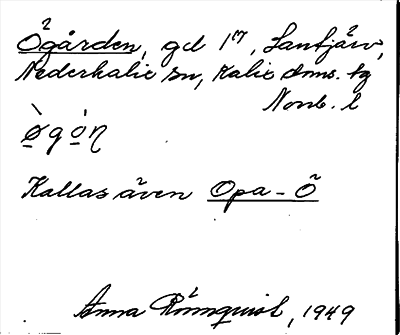 Ögården, gd 1⁷, Lantjärv,
Nederkalix sn, Kalix dms. tg
Norrb. l
Kallas även Opa-Ö
Anna Rönnquist, 1949